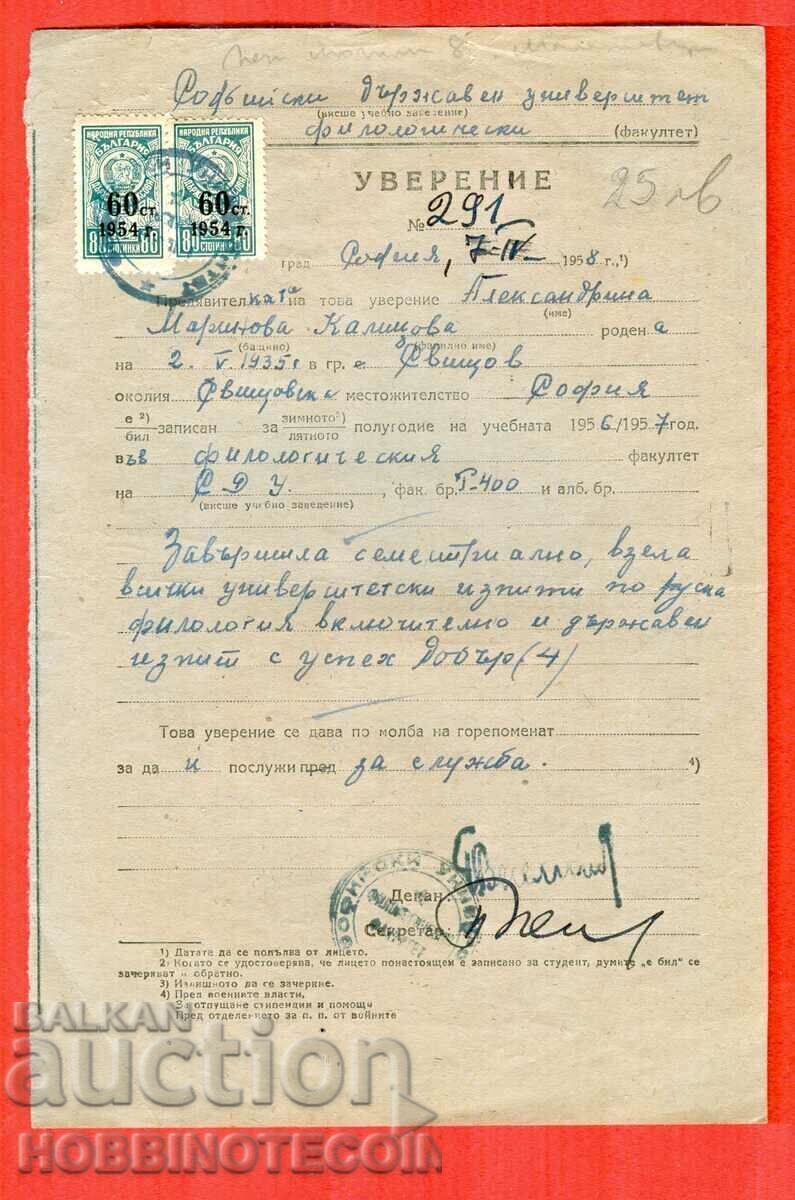 Софийски държавен университет
(висше учебно заведение)
филологически (факултет)
НАРОДНА РЕПУБЛИКА
БЪЛГАРИЯ
60 ст.
1954 г.
80 СТОТИНКИ 80
НАРОДНА РЕПУБЛИКА
БЪЛГАРИЯ
60 ст.
1954 г.
80 СТОТИНКИ 80
УВЕРЕНИЕ
25 лв
№ 291
град София, 7-IV- 1958 г.,¹)
Предявителката на това уверение Александрина
(име)
Маринова Калицова родена
(бащино) (фамилно име)
на 2. V. 1935 г. в гр. с. Свищов
околия Свищовска местожителство София
е ²) / бил записан за зимното³) / лятното полугодие на учебната 1956/1957 год.
във филологическия факултет
на СДУ, фак. бр. I-400 и алб. бр.
(висше учебно заведение)
Завършила семестриално, взела
всички университетски изпити по руска
филология включително и държавен
изпит с успех Добър (4)
Това уверение се дава по молба на горепоменат
за да и послужи пред за служба. ⁴)
Декан:
Секретар:
СОФИЙСКИ УНИВЕ
1) Датата да се попълва от лицето.
2) Когато се удостоверява, че лицето понастоящем е записано за студент, думите „е бил" се
зачеркват и обратно.
3) Излишното да се зачеркне.
4) Пред военните власти.
За отпущане стипендии и помощи
Пред отделението за п. п. от войните
BALKAN
auction
HOBBINOTECOIN